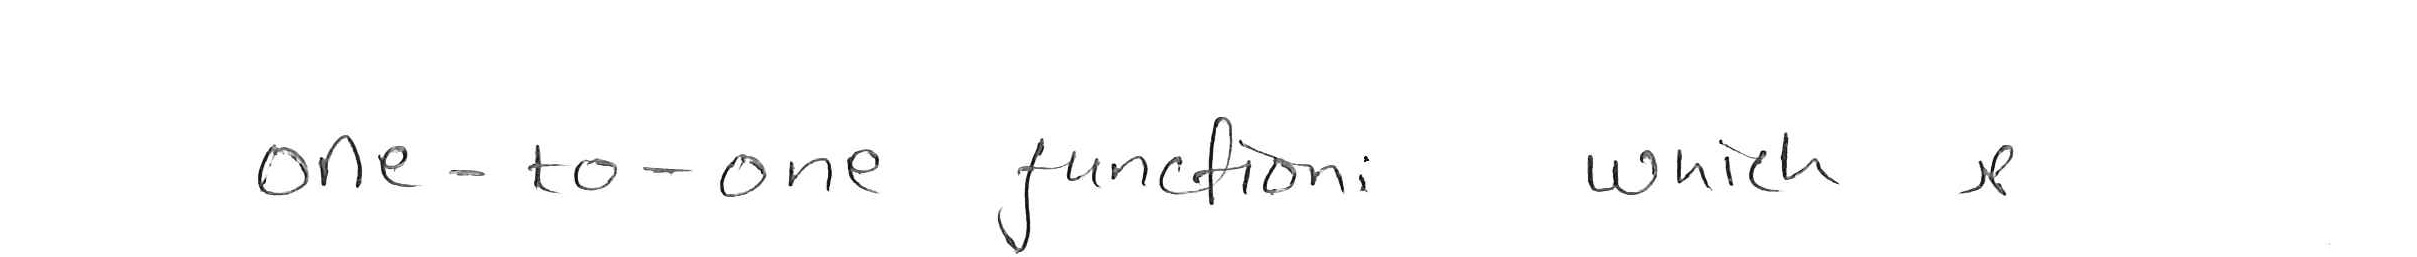 one-to-one function: which is